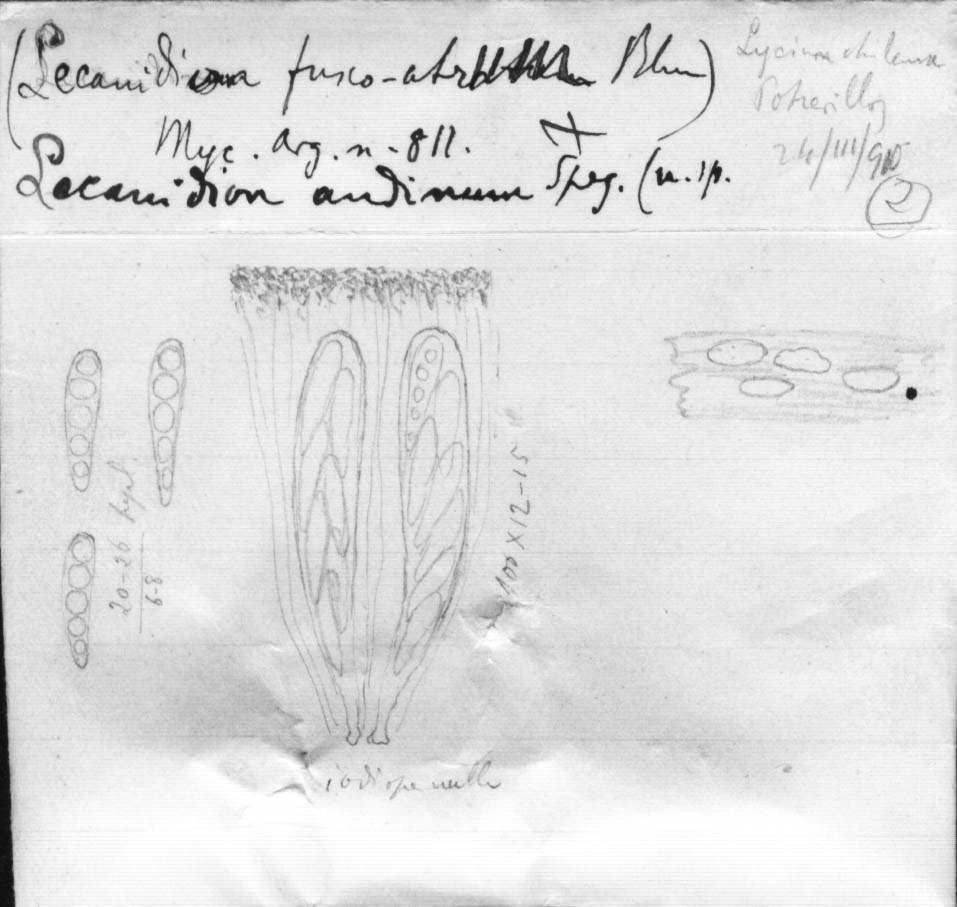 (Lecanidion fusco-atrum Blum)
Myc. Arg. n. 811. +
Lecanidion andinum Speg. (n. sp.
Lycium chilense
Potrerillos
24/III/905
2
20-26
6-8
100 X 12-15
iodi ope